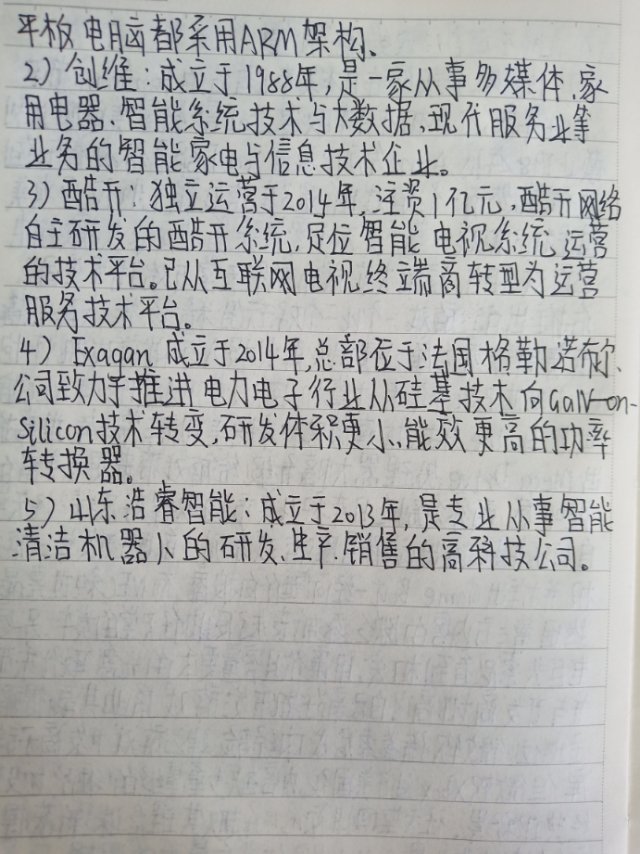 平板电脑都采用ARM架构、
2）创维：成立于1988年，是一家从事多媒体、家
用电器、智能系统技术与大数据、现代服务业等
业务的智能家电与信息技术企业。
3）酷开：独立运营于2014年，注资1亿元，酷开网络
自主研发的酷开系统，定位智能电视系统运营
的技术平台。已从互联网电视终端商转型为运营
服务技术平台。
4）Exagan 成立于2014年，总部位于法国格勒诺布尔、
公司致力于推进电力电子行业从硅基技术向GaN-on-
Silicon技术转变，研发体积更小、能效更高的功率
转换器。
5）山东浩睿智能：成立于2013年，是专业从事智能
清洁机器人的研发、生产、销售的高科技公司。